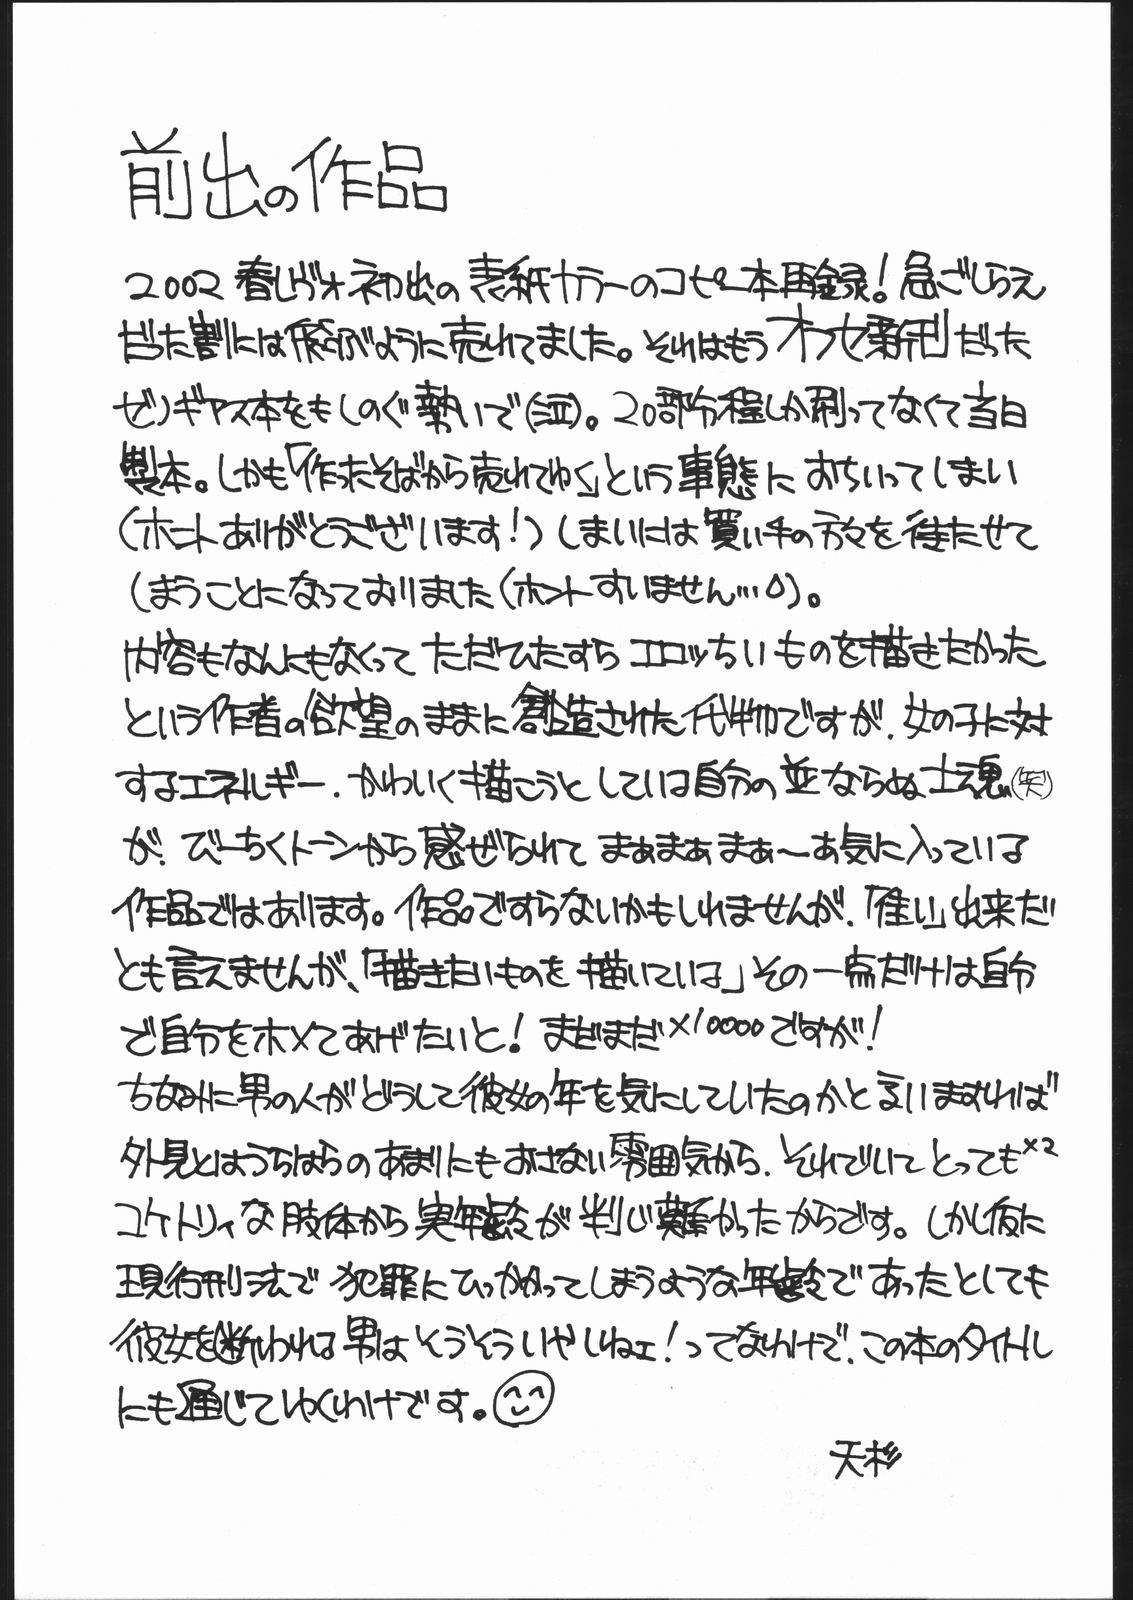 前出の作品
2002 春レヴォ初出の表紙カラーのコピー本再録！急ごしらえ
だった割には飛ぶように売れてました。それはもうオフセ新刊だった
ゼノギアス本をもしのぐ勢いで(泣)。20部分程しか刷ってなくて当日
製本。しかも「作ったそばから売れてゆく」という事態におちいってしまい
(ホントありがとうございます！)しまいには買い手の方々を待たせて
しまうことになっておりました(ホントすいません…)。
内容もなんにもなくってただひたすらエロッちいものを描きたかった
という作者の欲望のままに創造された代物ですが、女の子に対
するエネルギー、かわいく描こうとしている自分の並ならぬ士魂(笑)
が、びーちくトーンから感ぜられてまぁまぁまぁ〜お気に入っている
作品ではあります。作品ですらないかもしれませんが、「佳い」出来だ
とも言えませんが、「描きたいものを描いている」その一点だけは自分
で自分をホメてあげたいと！まだまだ×10000ですが！
ちなみに男の人がどうして彼女の年を気にしていたのかと言いますれば
外見とはうらはらのあまりにもおさない雰囲気から、それでいてとっても×2
コケトリィな肢体から実年齢が判じ難かったからです。しかし仮に
現行刑法で犯罪にひっかかってしまうような年齢であったとしても
彼女を断われる男はそうそういやしねェ！ってなわけで、この本のタイトル
にも通じてゆくわけです。
天杉